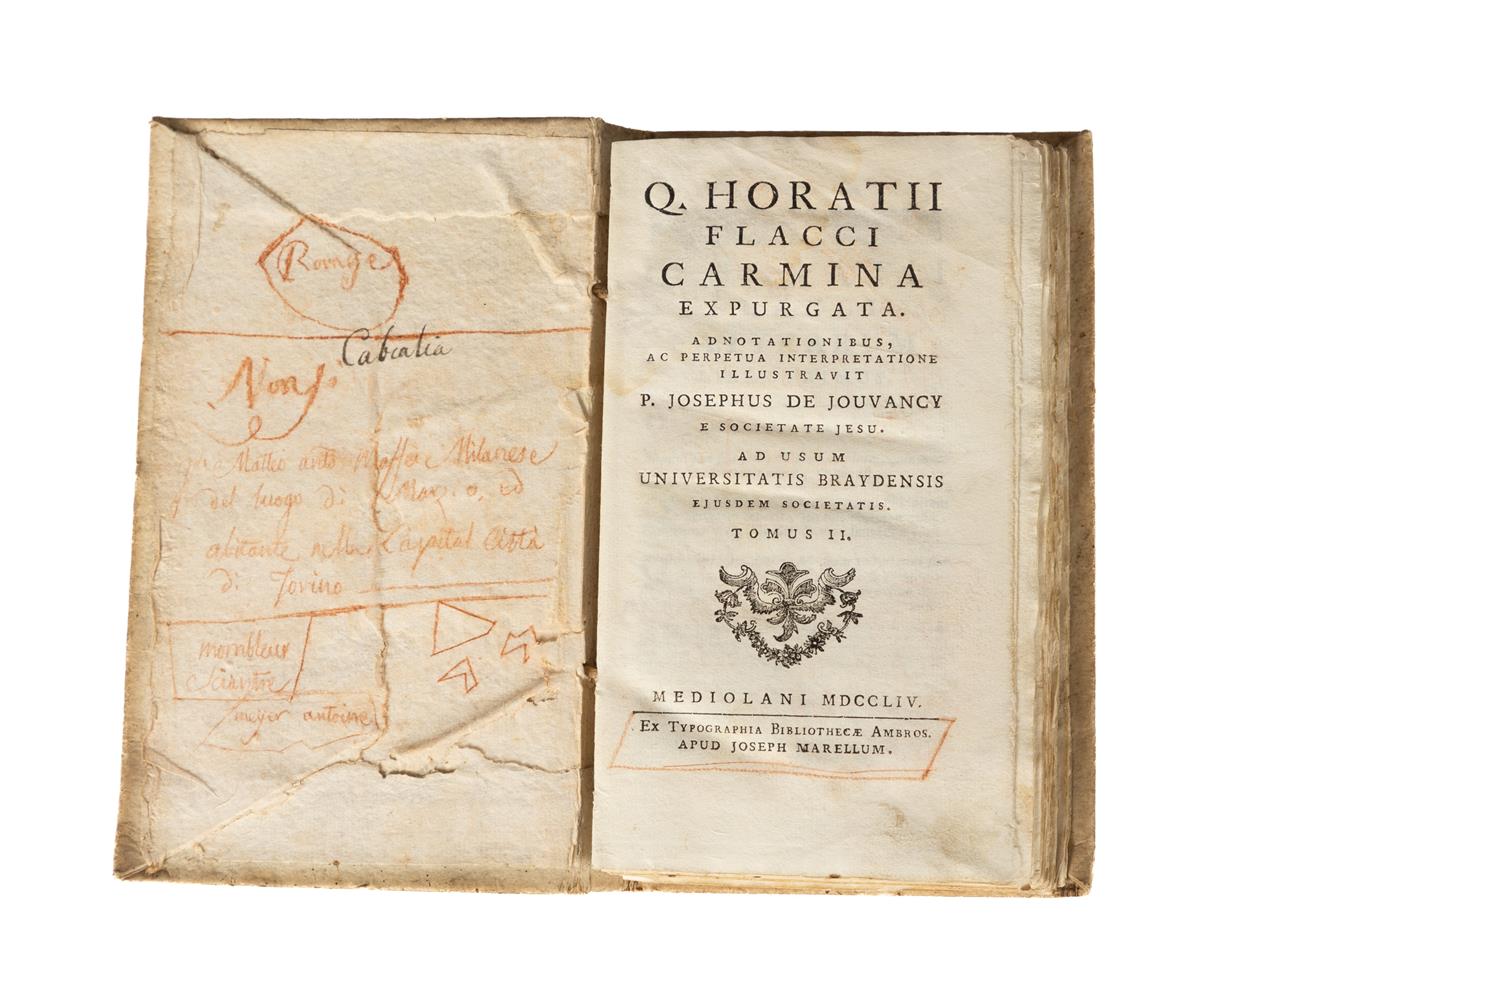 Rouge
Cabcalia
Matteo anto Milanese
del luogo di ed
abitante nella Capital Città
di Torino
mombleur
meyer antoine
Q. HORATII
FLACCI
CARMINA
EXPURGATA.
ADNOTATIONIBUS,
AC PERPETUA INTERPRETATIONE
ILLUSTRAVIT
P. JOSEPHUS DE JOUVANCY
E SOCIETATE JESU.
AD USUM
UNIVERSITATIS BRAYDENSIS
EJUSDEM SOCIETATIS.
TOMUS II.
MEDIOLANI MDCCLIV.
EX TYPOGRAPHIA BIBLIOTHECÆ AMBROS.
APUD JOSEPH MARELLUM.